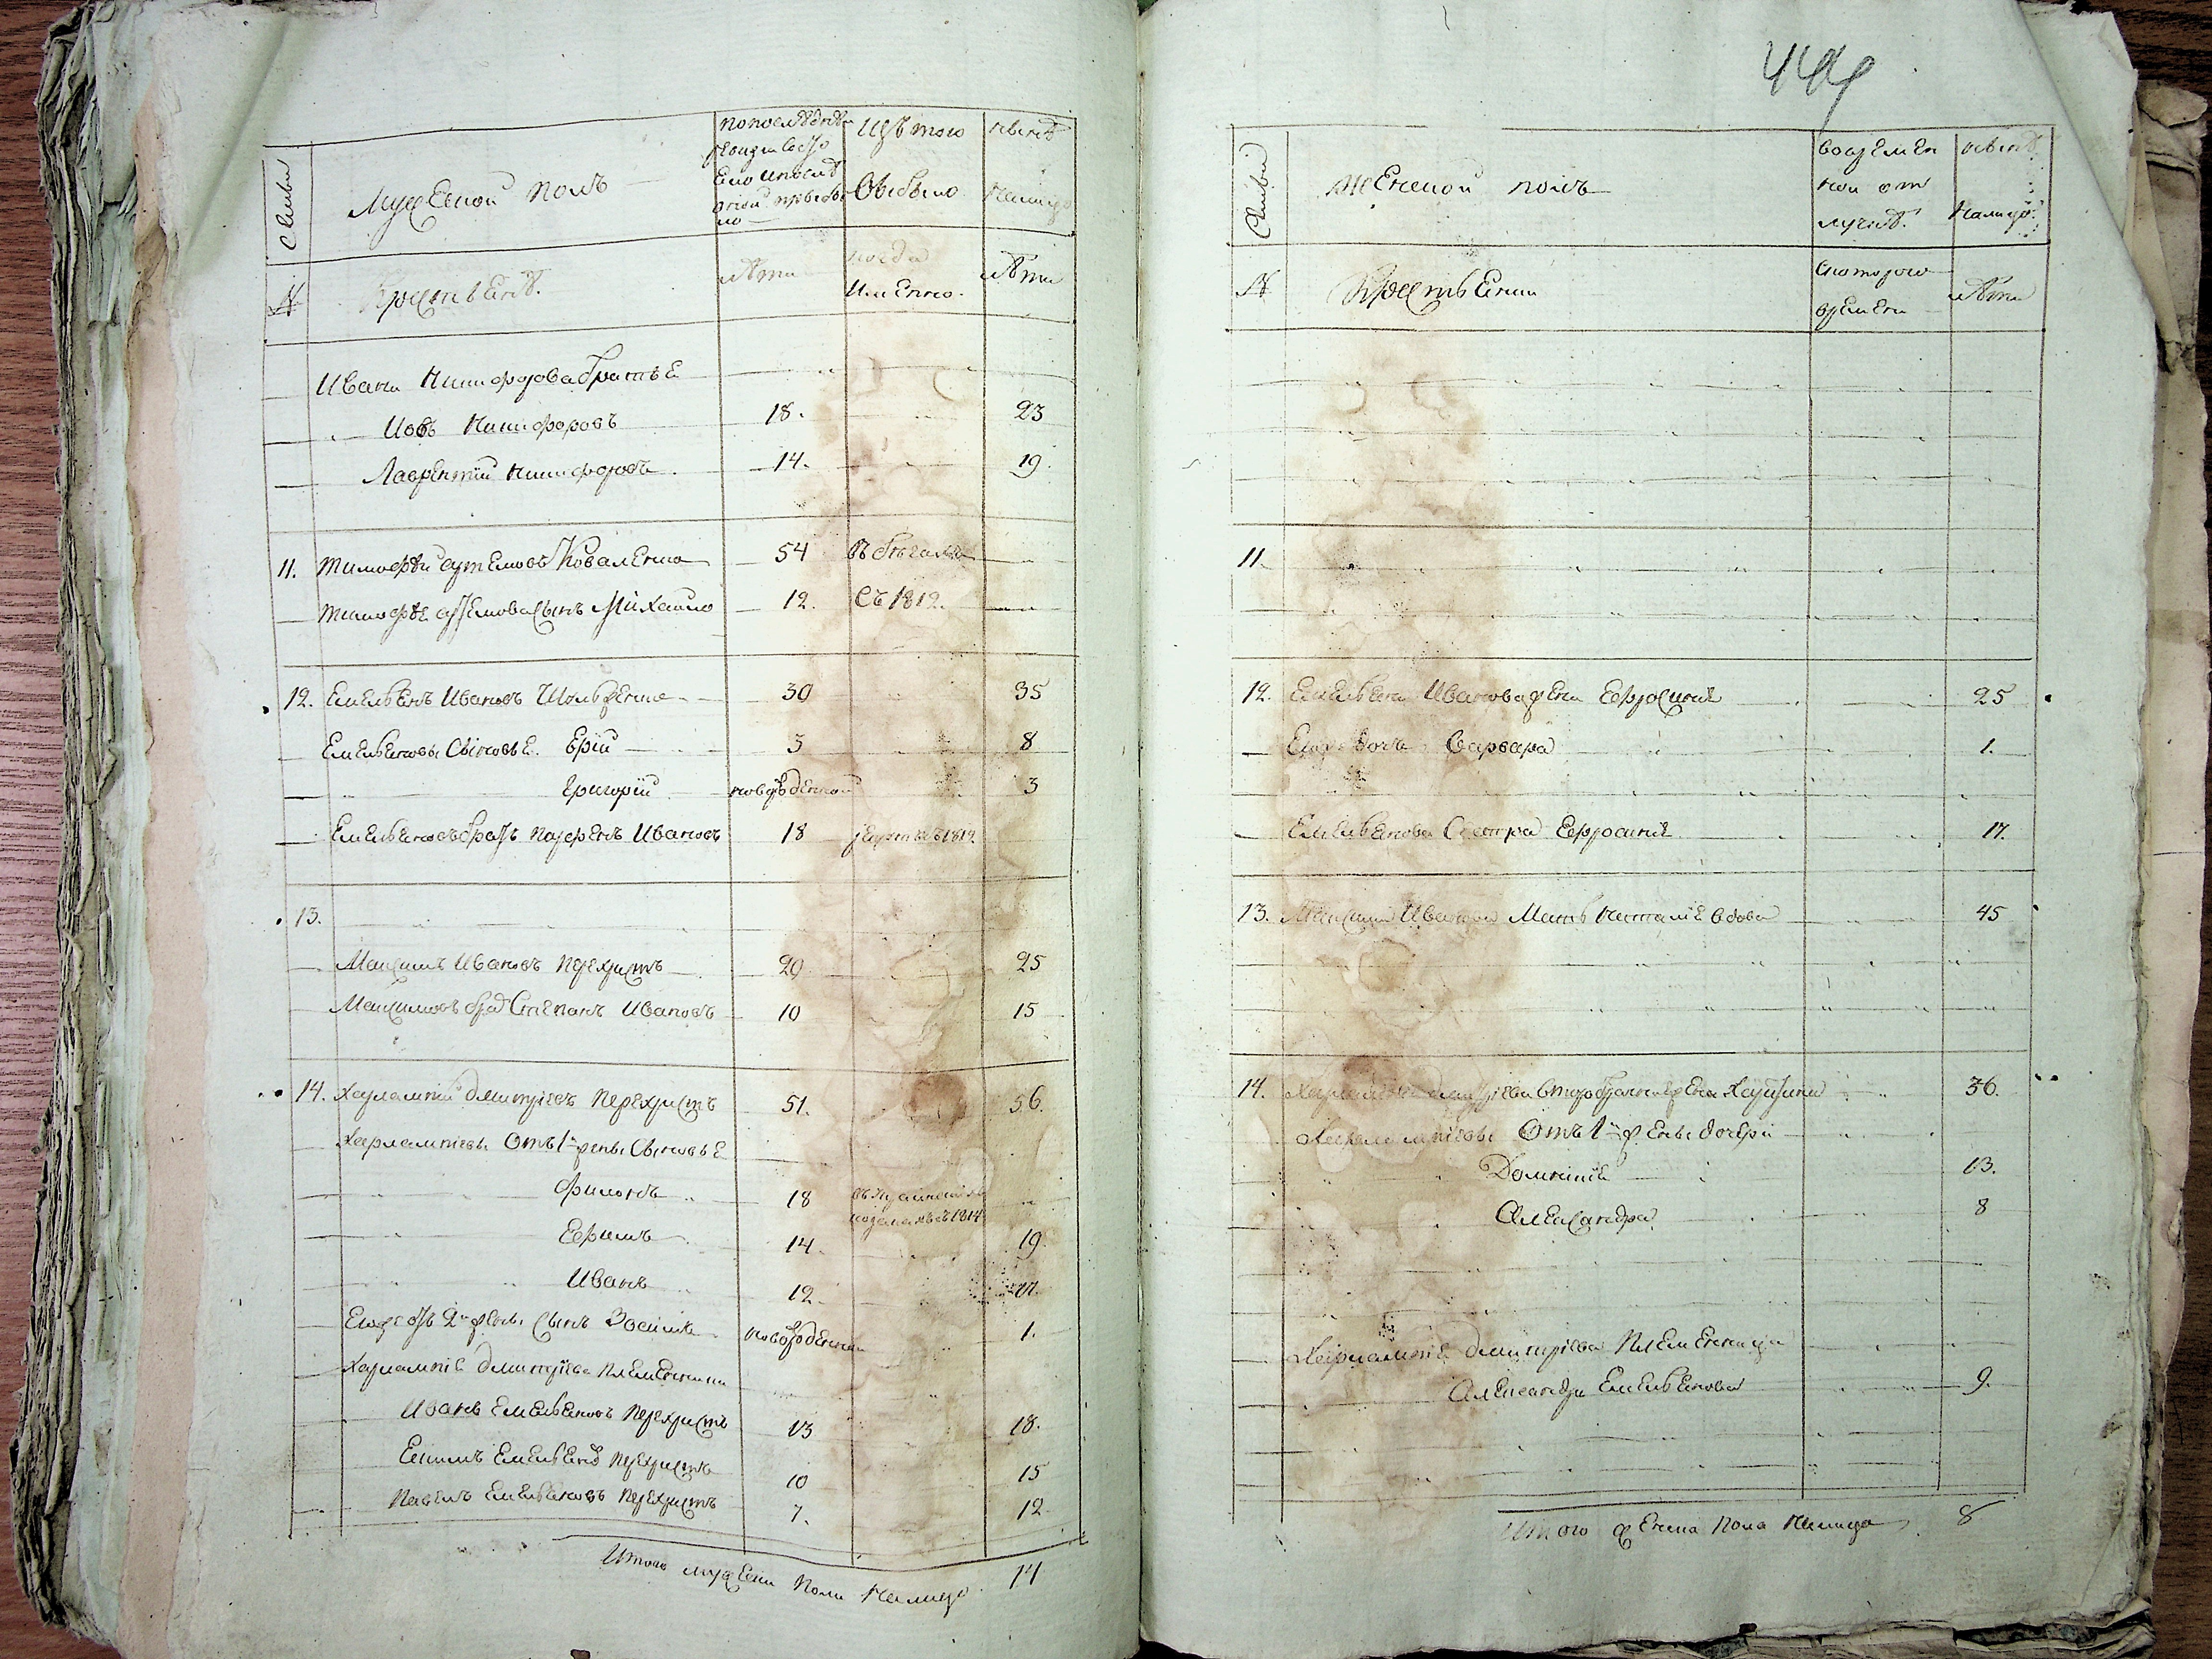 449
Семьи
Мужеской полъ
по последней
ревизии состо
яло и после
оной прибы
ло
Изъ того
выбыло
ныне
налицо
№
Крестьяне
лѣта
когда
именно.
лѣта
Ивана Никифорова братье
Иовъ Никифоровъ 18. 23
Лаврентий Никифоровъ 14. 19.
11. Тимофѣй Артемовъ Коваленко 54 въ бѣгахъ
Тимофѣе Артемова сынъ Михайло 12. съ 1812.
12. Емельенъ Ивановъ 30 35
Емельеновы сыновье. Ерій 3 8
Григорій новорожденной 3
Емельеновъ братъ Парфенъ Ивановъ 18 рекрутъ 1812
13.
Максимъ Ивановъ Перехристъ 20 25
Максимовъ братъ Степанъ Ивановъ 10 15
14. Харлампий Дмитріевъ Перехристъ 51. 56.
Харлампіевы отъ 1й жены сыновье
Филонъ 18 1814
Ефимъ 14. 19.
Иванъ 12. 17.
Его же отъ 2й жены сынъ Зосима новорожденной 1.
Харлампіе Дмитріева племенники
Иванъ Емельеновъ Перехристъ 13 18.
Екимъ Емельеновъ Перехристъ 10 15
Павелъ Емельеновъ Перехристъ 7. 12.
Итого мужеска пола налицо 14
Семьи
Женской полъ
во времен
ной от
лучке.
ныне
налицо.
№
Крестьенки
с которого
времени
лѣта
11.
12. Емельена Иванова жена Ефросиние 25
Его дочь Варвара 1.
Емельенова сестра Ефросиние 17.
13. Максима Иванова мать Наталие вдова 45
14. Харлампіе Дмитріева второбрачная жена 36.
Харлампіевы отъ 1й жены дочери
Домникие 13.
Александра 8
Харлампіе Дмитріева племенница
Александра Емельенова 9.
Итого женска пола налицо 8